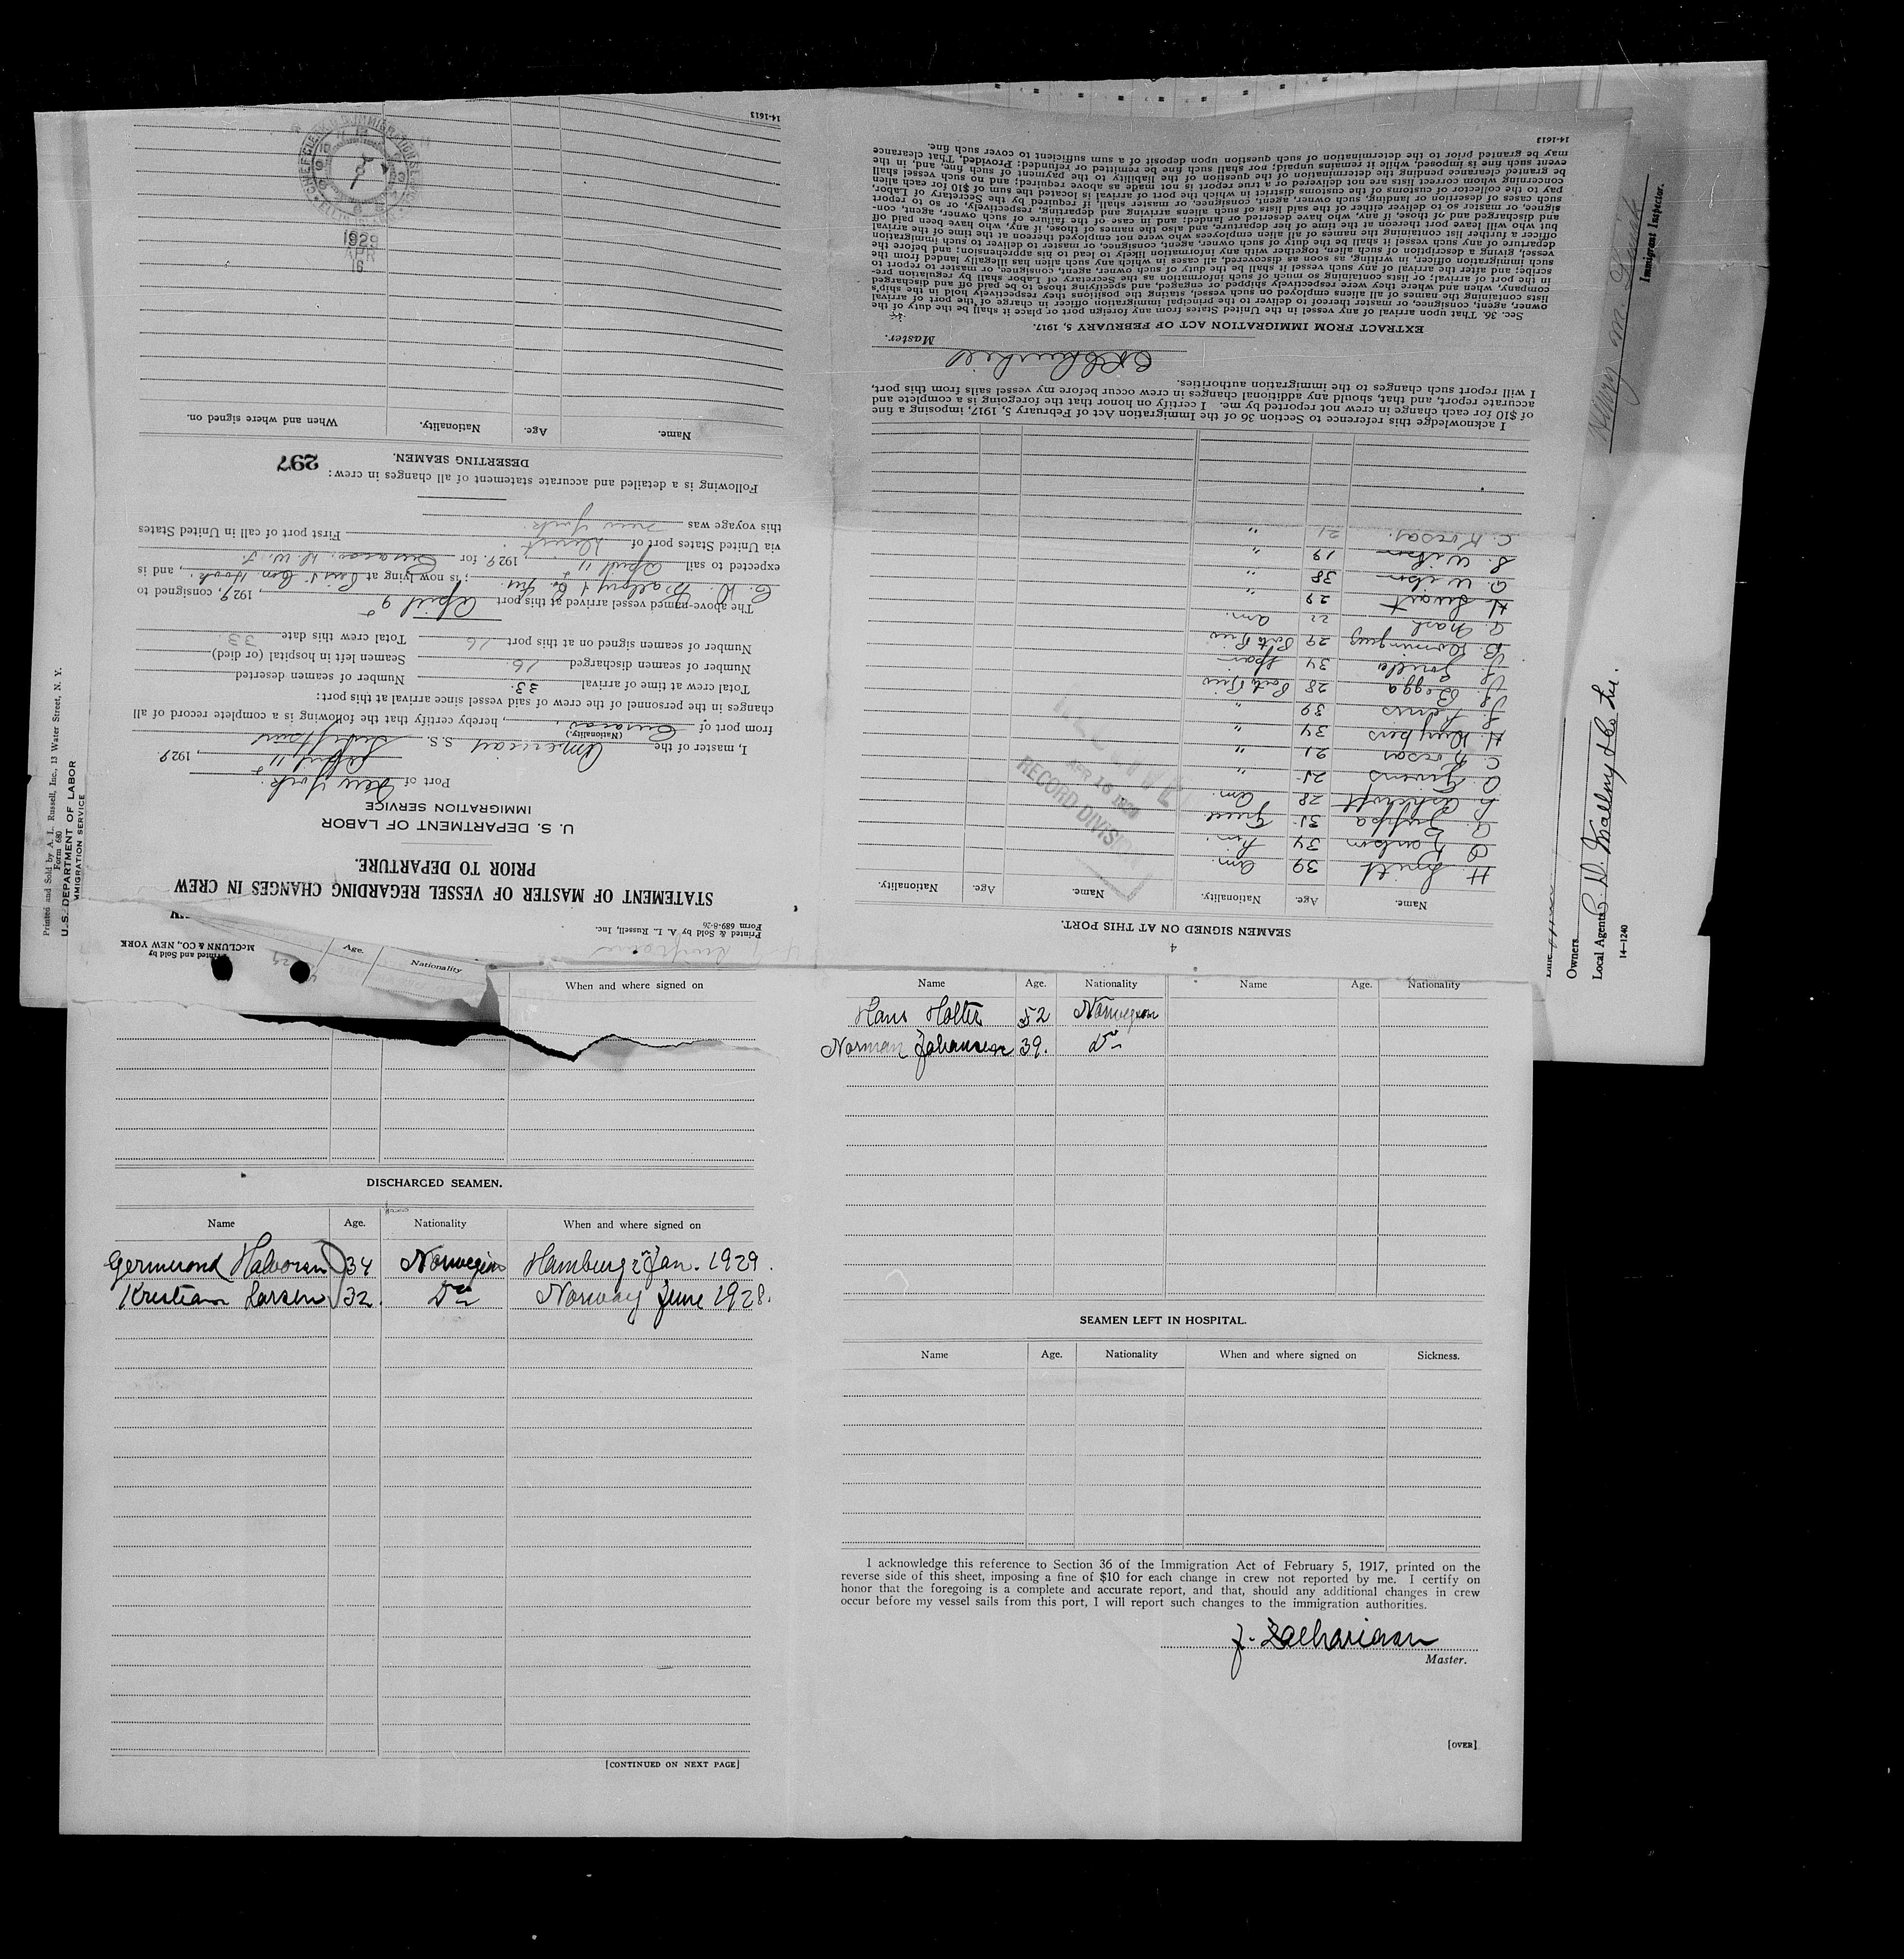 Form 689-8-26
Printed & Sold by A. L. Russell, Inc.
STATEMENT OF MASTER OF VESSEL REGARDING CHANGES IN CREW
PRIOR TO DEPARTURE.
U. S. DEPARTMENT OF LABOR
IMMIGRATION SERVICE
Port of New York
April 11, 1929
I, master of the American S. S.
(Nationality.)
from port of Curacao, hereby certify that the following is a complete record of all
changes in the personnel of the crew of said vessel since arrival at this port:
Total crew at time of arrival 33. Number of seamen deserted
Number of seamen discharged 16. Seamen left in hospital (or died)
Number of seamen signed on at this port 16 Total crew this date 33.
The above-named vessel arrived at this port April 9, 1929, consigned to
C. D. Mallory & Co. Inc.; is now lying at, and is
expected to sail April 11, 1929. for Curacao, D. W. I.
via United States port of Direct First port of call in United States
this voyage was New York.
Following is a detailed and accurate statement of all changes in crew:
297
DESERTING SEAMEN.
Name. Age. Nationality. When and where signed on.
1929
APR
16
14-1613
4
SEAMEN SIGNED ON AT THIS PORT.
Name. Age. Nationality. Name. Age. Nationality.
H. 39 Am.
34
31
28 Am.
A. 25 "
C. 21 "
H. 34 "
39 "
J. 28 Porto Rico
J. 34 Span
B. Domingues 29 Porto Rico
G. Nash 22 Am.
H. Swart 29 "
38 "
S. 19 "
C. 21 "
APR 16 1929
RECORD DIVISION
I acknowledge this reference to Section 36 of the Immigration Act of February 5, 1917, imposing a fine
of $10 for each change in crew not reported by me. I certify on honor that the foregoing is a complete and
accurate report, and that, should any additional changes in crew occur before my vessel sails from this port,
I will report such changes to the immigration authorities.
Master.
EXTRACT FROM IMMIGRATION ACT OF FEBRUARY 5, 1917.
Sec. 36. That upon arrival of any vessel in the United States from any foreign port or place it shall be the duty of the
owner, agent, consignee, or master thereof to deliver to the principal immigration officer in charge of the port of arrival
lists containing the names of all aliens employed on such vessel, stating the positions they respectively hold in the ship's
company, when and where they were respectively shipped or engaged, and specifying those to be paid off and discharged
in the port of arrival; or lists containing so much of such information as the Secretary of Labor shall by regulation pre-
scribe; and after the arrival of any such vessel it shall be the duty of such owner, agent, consignee, or master to report to
such immigration officer, in writing, as soon as discovered, all cases in which any such alien has illegally landed from the
vessel, giving a description of such alien, together with any information likely to lead to his apprehension; and before the
departure of any such vessel it shall be the duty of such owner, agent, consignee, or master to deliver to such immigration
officer a further list containing the names of all alien employees who were not employed thereon at the time of the arrival
but who will leave port thereon at the time of her departure, and also the names of those, if any, who have been paid off
and discharged and of those, if any, who have deserted or landed; and in case of the failure of such owner, agent, con-
signee, or master so to deliver either of the said lists of such aliens arriving and departing, respectively, or so to report
such cases of desertion or landing, such owner, agent, consignee, or master shall, if required by the Secretary of Labor,
pay to the collector of customs of the customs district in which the port of arrival is located the sum of $10 for each alien
concerning whom correct lists are not delivered or a true report is not made as above required; and no such vessel shall
be granted clearance pending the determination of the question of the liability to the payment of such fine, and, in the
event such fine is imposed, while it remains unpaid; nor shall such fine be remitted or refunded: Provided, That clearance
may be granted prior to the determination of such question upon deposit of a sum sufficient to cover such fine.
14-1613
Printed and Sold by A. L. Russell, Inc., 13 Water Street, N. Y.
Form 680
U. S. DEPARTMENT OF LABOR
IMMIGRATION SERVICE
Immigrant Inspector.
Owners
Local Agents C. D. Mallory & Co. Inc.
14-1240
Printed and Sold by
McCLUNN & CO., NEW YORK
Age. Nationality
When and where signed on
DISCHARGED SEAMEN.
Name Age. Nationality When and where signed on
Germund Halvorsen 34 Norwegian Hamburg 2 Jan. 1929.
Kristian Larsen 32. Do Norway June 1928.
[CONTINUED ON NEXT PAGE]
Name Age. Nationality Name Age. Nationality
Hans Holter 52 Norwegian
Norman Johansen 39. Do
SEAMEN LEFT IN HOSPITAL.
Name Age. Nationality When and where signed on Sickness.
I acknowledge this reference to Section 36 of the Immigration Act of February 5, 1917, printed on the
reverse side of this sheet, imposing a fine of $10 for each change in crew not reported by me. I certify on
honor that the foregoing is a complete and accurate report, and that, should any additional changes in crew
occur before my vessel sails from this port, I will report such changes to the immigration authorities.
J. Zachariasen
Master.
[OVER]